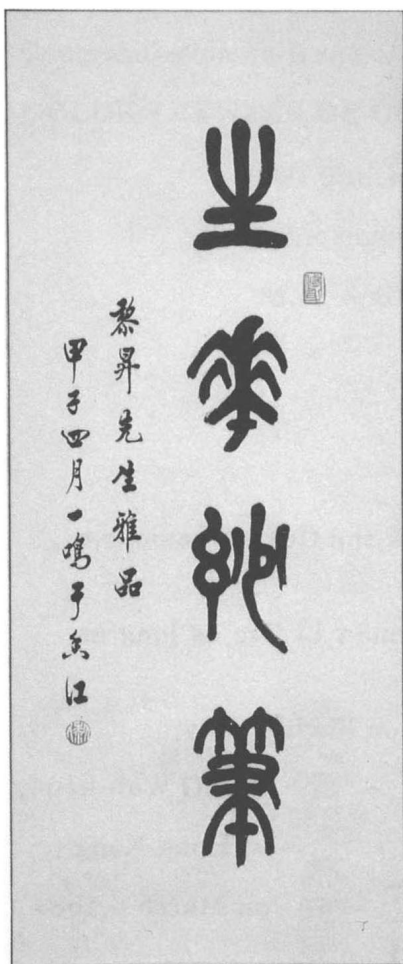 生花妙筆
黎昇先生雅品
甲子四月一鳴于香江